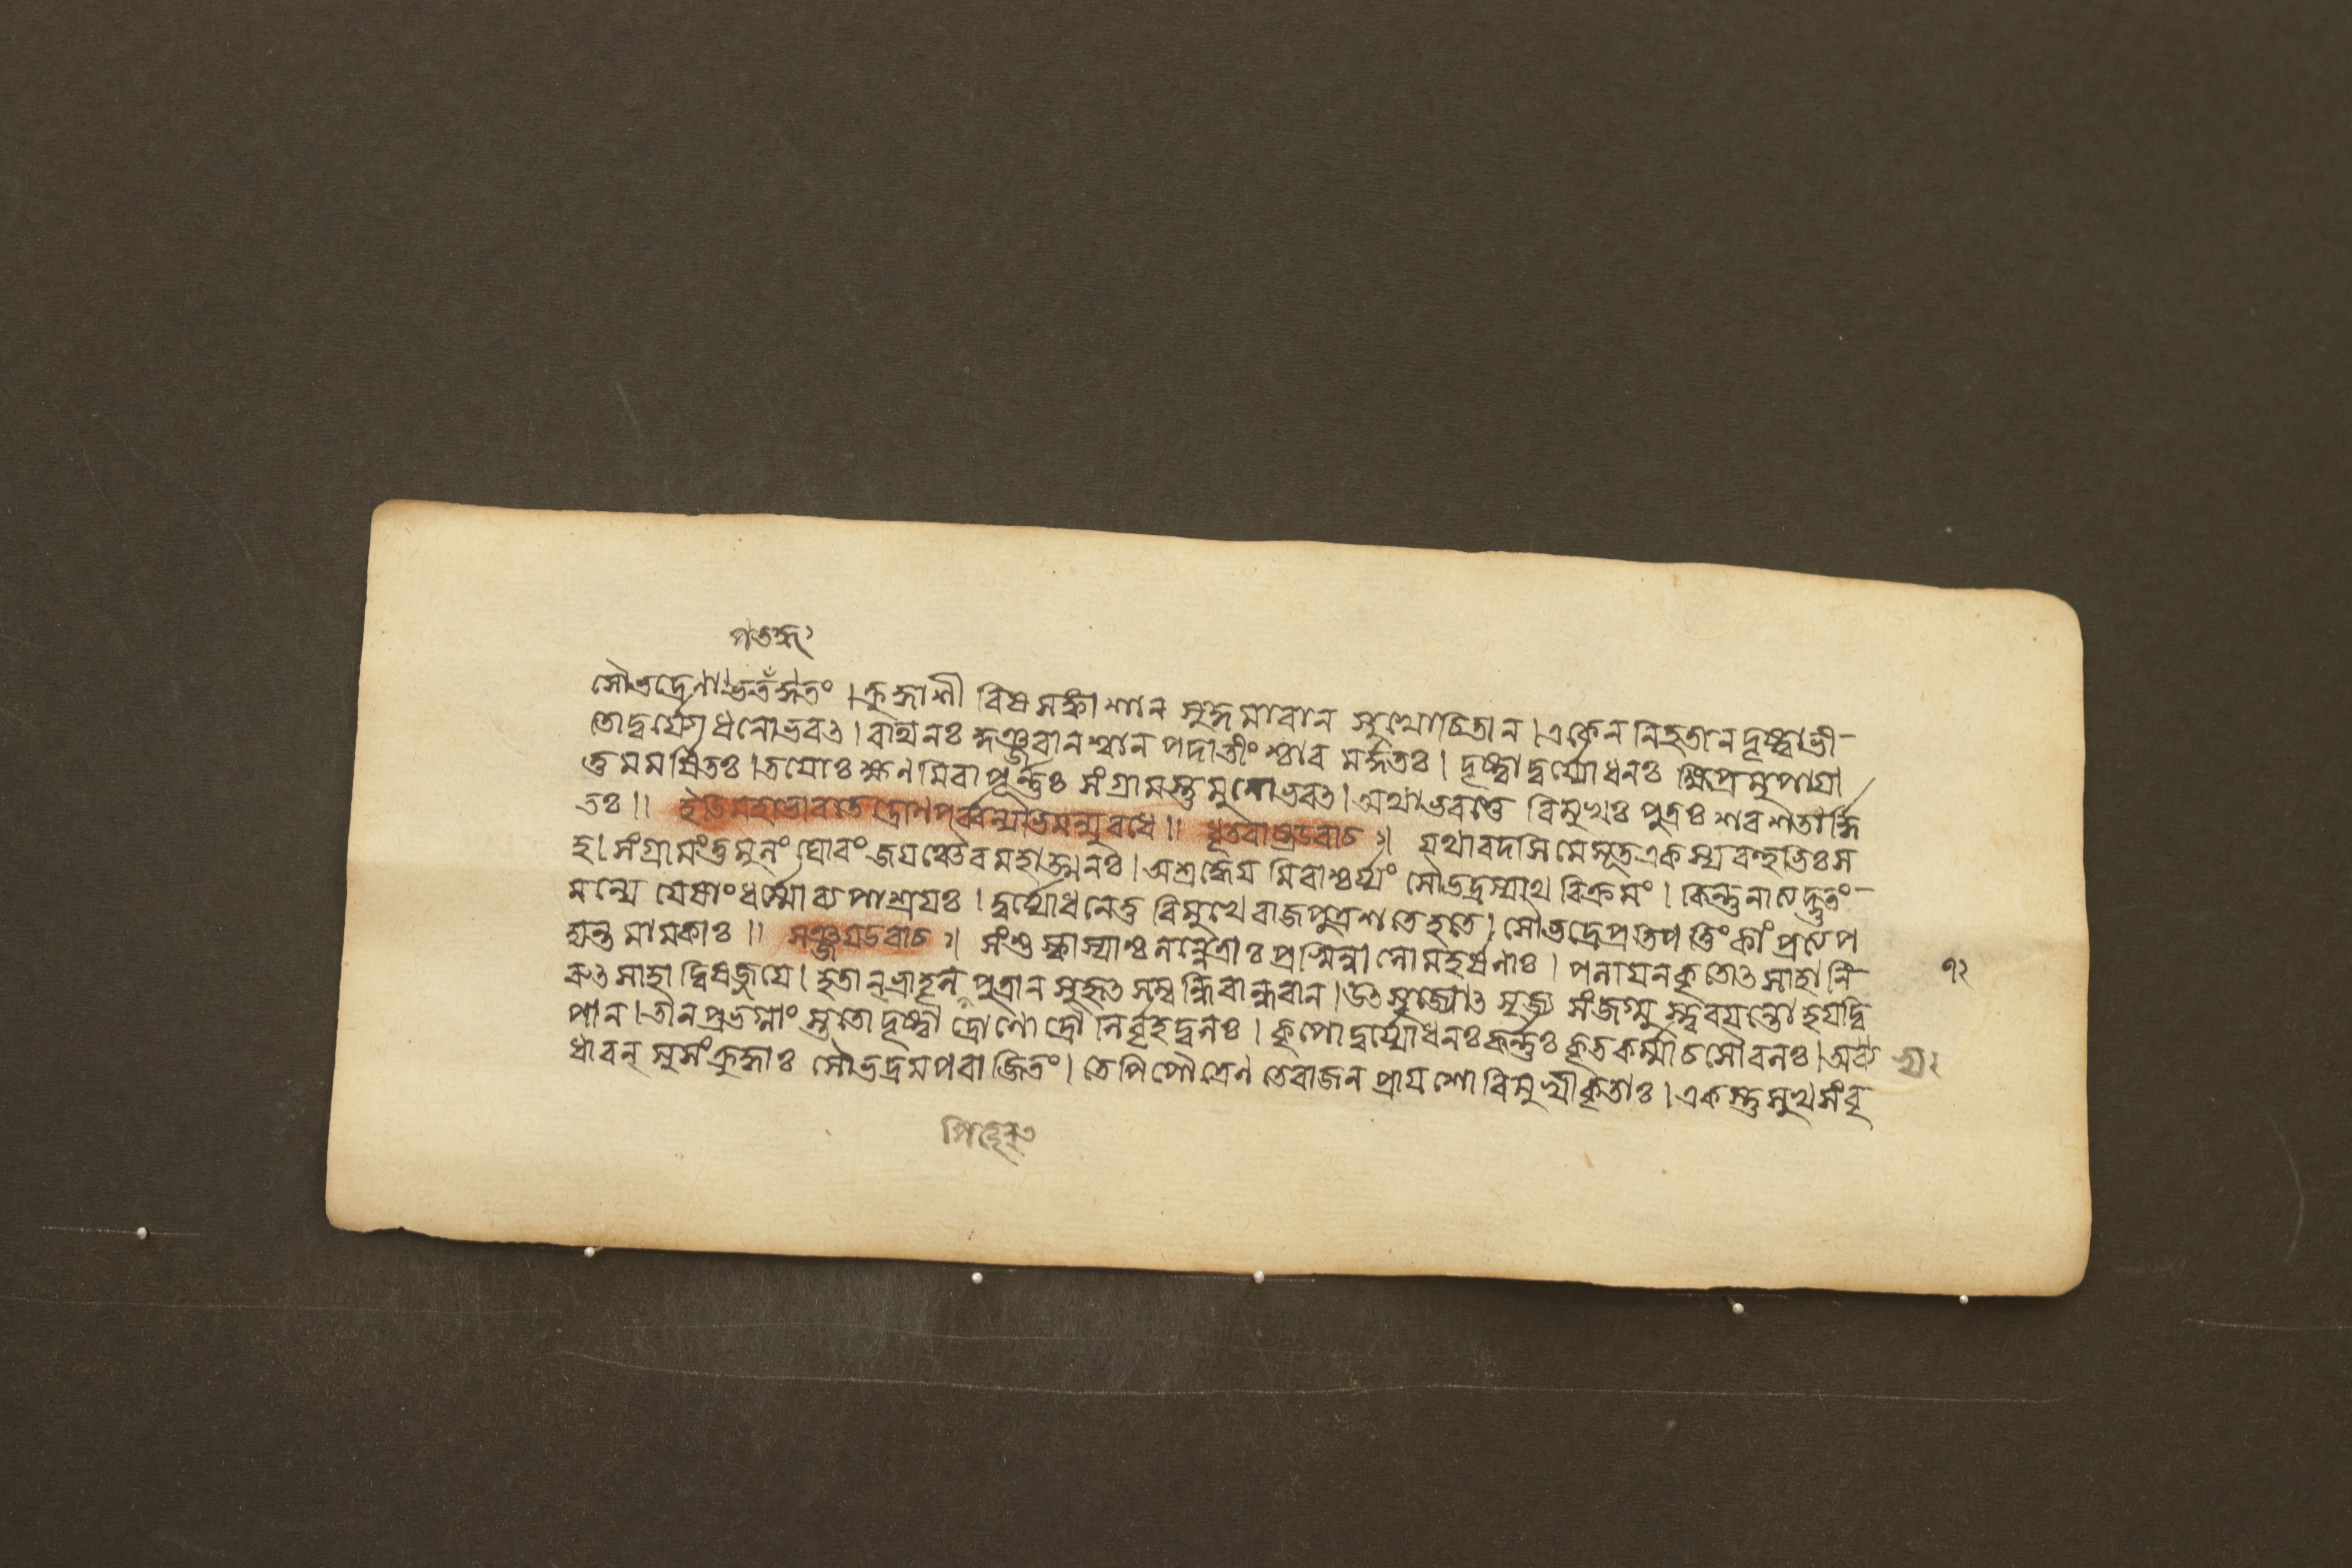 সৌভদ্রেণা শতং । ক্রুদ্ধাশী বিষ সঙ্কাশান সুকুমারান সুখোচিতান । একেন নিহতান দৃষ্ট্বাভী-
তোদুর্য্যোধনোভবৎ । রথিনঃ কুঞ্জরানশ্বান পদাতীংশ্চাব মর্দ্দিতঃ । দৃষ্ট্বা দুর্য্যোধনঃ ক্ষিপ্রমুপায়া
ত্তু মমর্ষিতঃ । তয়োঃ ক্ষণমিবাপূর্ণ্ণঃ সংগ্রামস্তুমুলোভবৎ । অথাভবত্তে বিমুখঃ পুত্রঃ শরশতার্দ্দি
তঃ ॥ ইতিমহাভারতে দ্রোণপর্ব্বণ্যভিমন্যুবধে ॥ ধৃতরাষ্ট্রউবাচ ঃ। যথাবদসিমেসূতএকস্যবহুভিঃস
হ। সংগ্রামংতুমুলং ঘোরং জয়ঞ্চৈবমহাত্মনঃ । অশ্রদ্ধেয় মিবাশ্চর্য্যং সৌভদ্রস্যাথ বিক্রমং । কিন্তুনাত্যদ্ভুতং-
মন্যে যেষাংধর্ম্মোব্যপাশ্রয়ঃ । দুর্য্যোধনেতু বিমুখে রাজপুত্রশতেহতে । সৌভদ্রেপ্রতিপত্তিংকাংপ্রত্যপ
দ্যন্ত মামকাঃ ॥ সঞ্জয়উবাচ ঃ। সংশুষ্কাস্যাশ্চলন্নেত্রাঃ প্রস্বিন্নালোমহর্ষণাঃ । পলায়নকৃতোৎসাহানি-
রুৎসাহাদ্বিষজ্জয়ে । হতান্ভ্রাতৄন্ পুত্রান সুহৃৎসম্বন্ধিবান্ধবান । উৎসৃজ্যোৎসৃজ্য সংজগ্মুস্ত্বরয়ন্তোহয়দ্বি
পান । তানপ্রভগ্নাংস্তথাদৃষ্ট্বা দ্রোণোদ্রৌণির্বৃহদ্বলঃ । কৃপোদুর্য্যোধনঃকর্ণ্ণঃকৃতবর্ম্মাচসৌবলঃ । অভ্য
ধাবন্ সুসংক্রুদ্ধাঃ সৌভদ্রমপরাজিতং । তেপিপৌত্রেণ তেরাজন প্রায়শোবিমুখীকৃতাঃ । একস্তুসুখসংবৃ